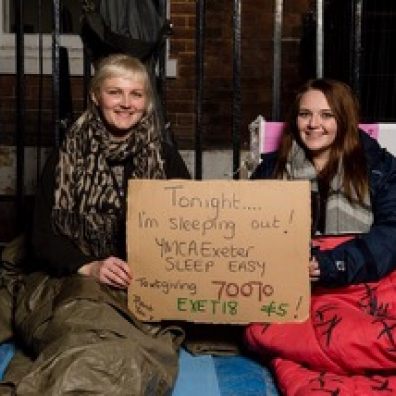 Tonight....
I'm sleeping out!
YMCAExeter
SLEEP EASY
Textgiving 70070
EXET18 £5!